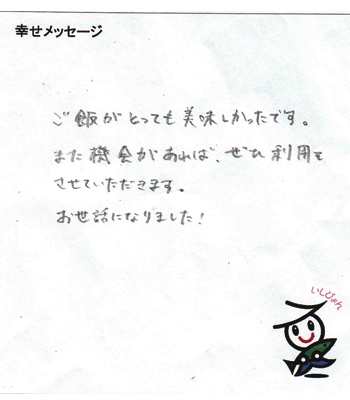 幸せメッセージ
ご飯がとっても美味しかったです。
また機会があれば、ぜひ利用を
させていただきます。
お世話になりました!
いしぴょん